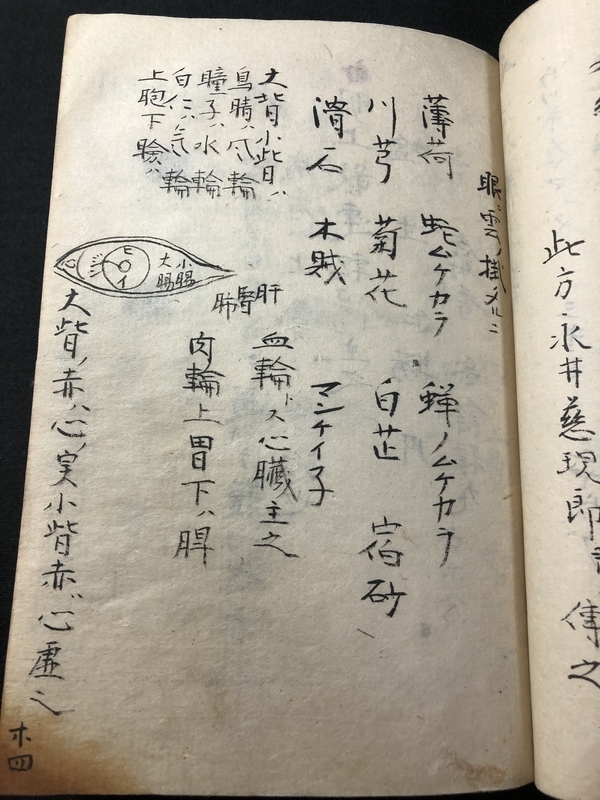 此方ハ永井慈現即
傳之
眼ニ雲ノ掛タルニ
薄荷 蛇ムケカラ 蝉ノムケカラ
川芎 菊花 白芷 宿砂
滑石 木賊 マンケイ子
大眥小眥ハ 血輪トス心臓主之
烏睛ハ風輪 肝
瞳子ハ水輪 腎
白仁ハ気輪 肺
上胞下瞼ハ 肉輪上胃下ハ脾
小腸
大腸
大眥ノ赤ハ心ノ実小眥赤ハ心虚之
木四